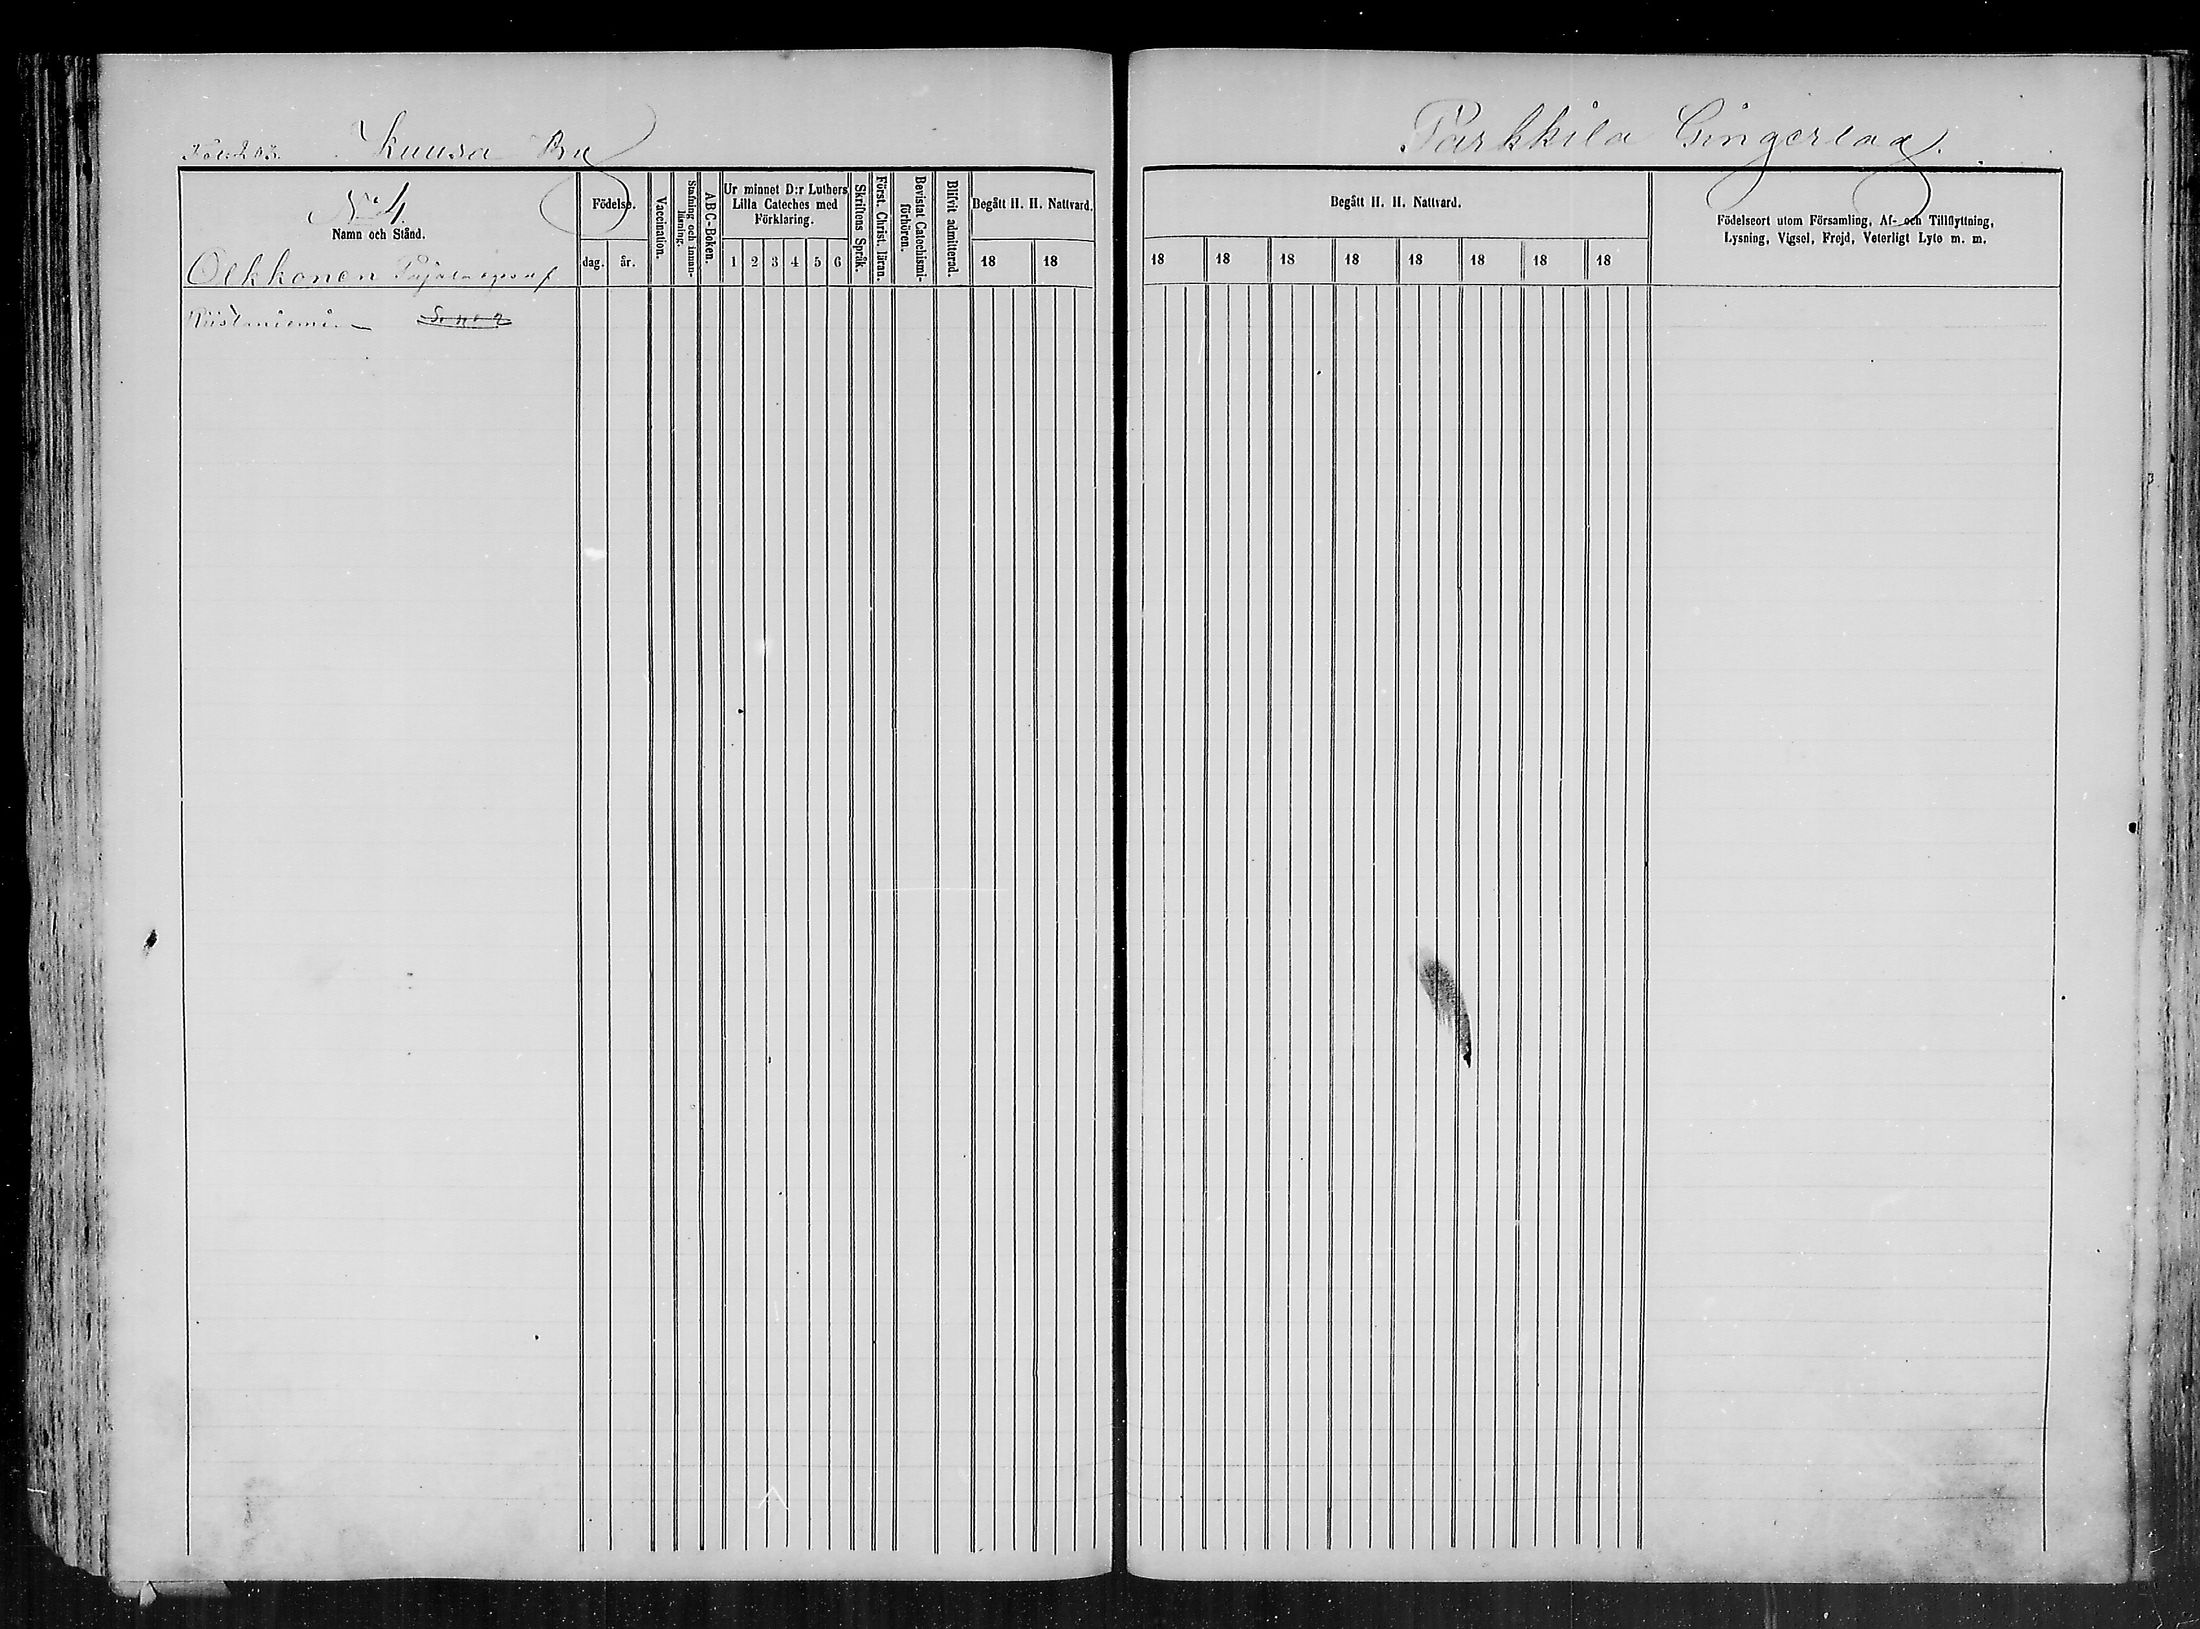 Kuusa By
Parkkila Gingerlag.
No 4.
Namn och Stånd.
Olkkonen
Riistaniemi.
Födelse.
dag. år.
Vaccination.
Stafning och innan-
läsning.
A B C-Boken.
Ur minnet D:r Luthers
Lilla Cateches med
Förklaring.
1 2 3 4 5 6
Skriftens Språk.
Först. Christ. läran.
Bevistat Catechismi-
förhören.
Blifvit admitterad.
Begått H. H. Nattvard.
18 18
Begått H. H. Nattvard.
18 18 18 18 18 18 18 18
Födelseort utom Församling, Af- och Tillflyttning,
Lysning, Vigsel, Frejd, Veterligt Lyte m. m.